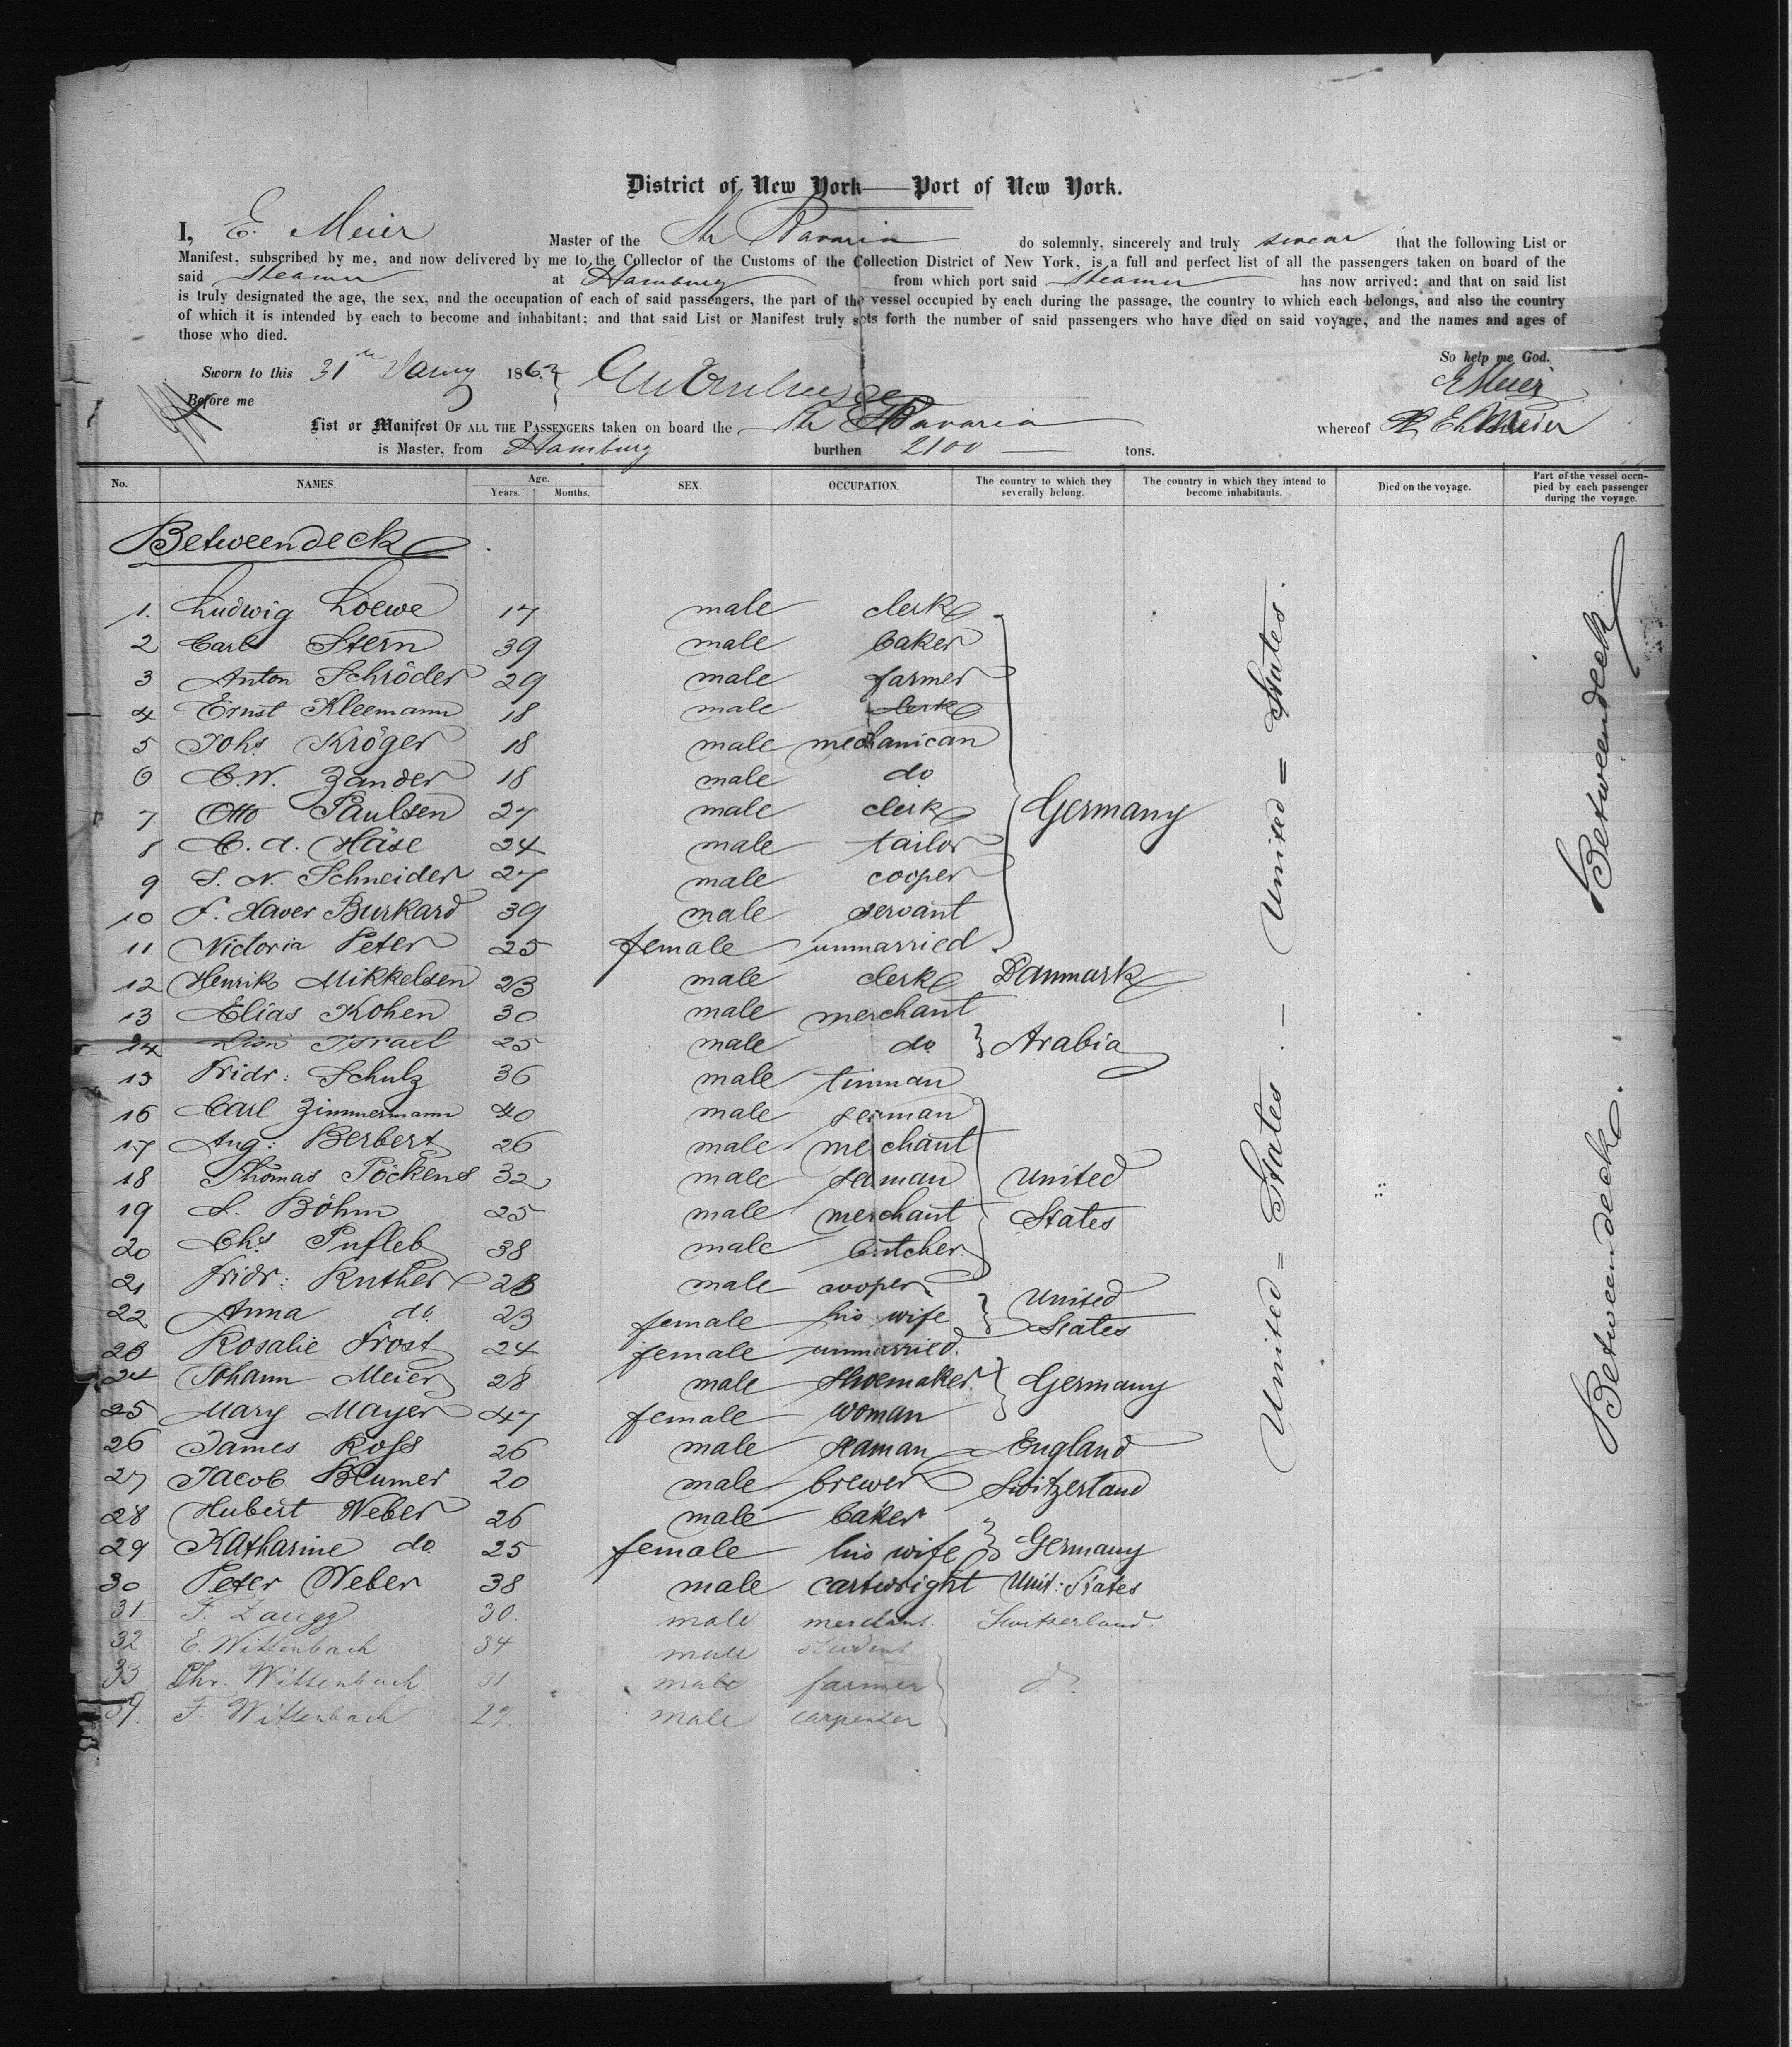 District of New York—Port of New York.
I, E. Meier Master of the Str Bavaria do solemnly, sincerely and truly swear that the following List or
Manifest, subscribed by me, and now delivered by me to the Collector of the Customs of the Collection District of New York, is a full and perfect list of all the passengers taken on board of the
said steamer at Hamburg from which port said steamer has now arrived; and that on said list
is truly designated the age, the sex, and the occupation of each of said passengers, the part of the vessel occupied by each during the passage, the country to which each belongs, and also the country
of which it is intended by each to become and inhabitant; and that said List or Manifest truly sets forth the number of said passengers who have died on said voyage, and the names and ages of
those who died.
So help me God.
Sworn to this 31 1862
E Meier
Before me
List or Manifest OF ALL THE PASSENGERS taken on board the Str Bavaria whereof Meier
is Master, from Hamburg burthen 2100 tons.
No. NAMES. Age. Years. Months. SEX. OCCUPATION. The country to which they severally belong. The country in which they intend to become inhabitants. Died on the voyage. Part of the vessel occupied by each passenger during the voyage.
Betweendeck
1. Ludwig Loewe 17 male clerk
2 Carl Stern 39 male baker
3 Anton Schröder 29 male farmer
4 Ernst Kleemann 18 male clerk
5 Johs. Kröger 18 male mechanican
6 C.W. Zander 18 male do
7 Otto Paulsen 27 male clerk Germany
8 C. A. Häse 24 male tailor
9 S. N. Schneider 27 male cooper
10 F. Xaver Burkard 39 male servant
11 Victoria Peter 25 female unmarried
12 Henrik Mikkelsen 23 male clerk Danmark
13 Elias Kohen 30 male merchant
14 Israel 25 male do. Arabia
15 Fridr: Schulz 36 male tinman
16 Carl Zimmermann 40 male seaman
17 Aug: Berbert 26 male merchant
18 Thomas Pöckens 32 male seaman United
19 S. Böhm 25 male merchant States
20 Chs. Pufleb 38 male butcher
21 Fridr: Ruther 28 male cooper
22 Anna do. 23 female his wife United States
23 Rosalie Frost 24 female unmarried.
24 Johann Meier 28 male shoemaker Germany
25 Mary Mayer 47 female woman
26 James Ross 26 male seaman England
27 Jacob Blumer 20 male brewer Switzerland
28 Hubert Weber 26 male baker
29 Katharine do. 25 female his wife Germany
30 Peter Weber 38 male cartwright Unit: States
31 F. Zaugg 30. male merchant. Switserland.
32 E. Wittenbach 34 male student
33 Chr. Wittenbach 31 male farmer do.
34. F. Wittenbach 29. male carpenter
United = States. — United = States.
Betweendeck. Betweendeck